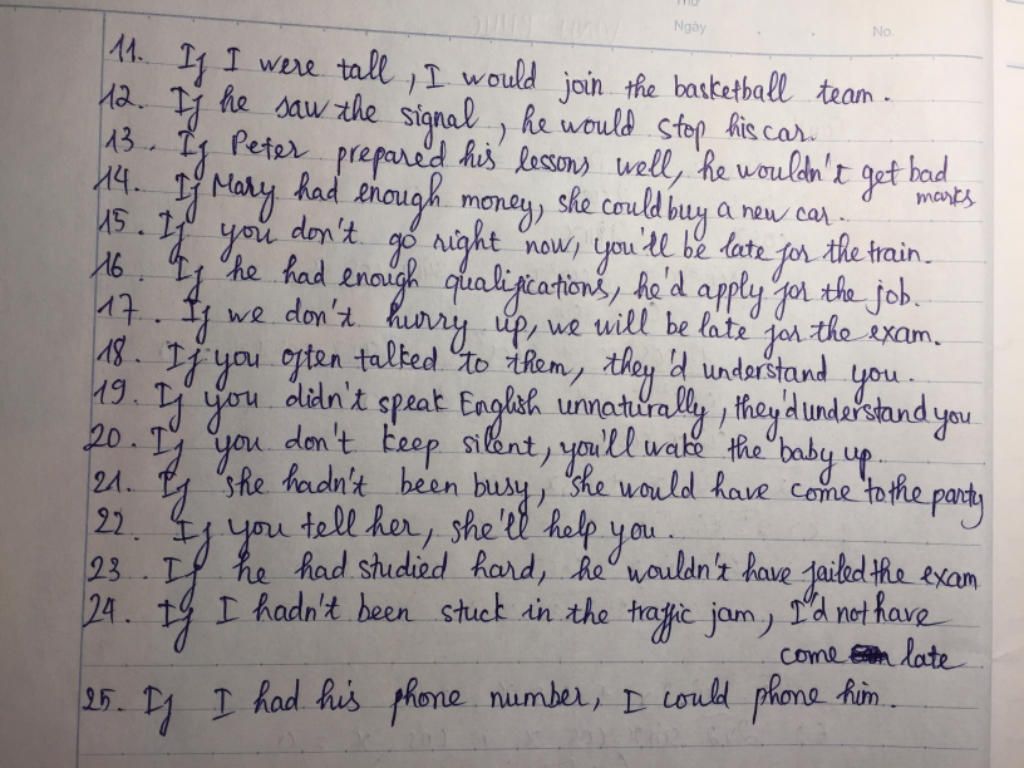 Thứ
Ngày
No.
11. If I were tall, I would join the basketball team.
12. If he saw the signal, he would stop his car.
13. If Peter prepared his lessons well, he wouldn't get bad
marks
14. If Mary had enough money, she could buy a new car.
15. If you don't go right now, you'll be late for the train.
16. If he had enough qualifications, he'd apply for the job.
17. If we don't hurry up, we will be late for the exam.
18. If you often talked to them, they'd understand you.
19. If you didn't speak English unnaturally, they'd understand you
20. If you don't keep silent, you'll wake the baby up.
21. If she hadn't been busy, she would have come to the party
22. If you tell her, she'll help you.
23. If he had studied hard, he wouldn't have failed the exam
24. If I hadn't been stuck in the traffic jam, I'd not have
come late
25. If I had his phone number, I could phone him.